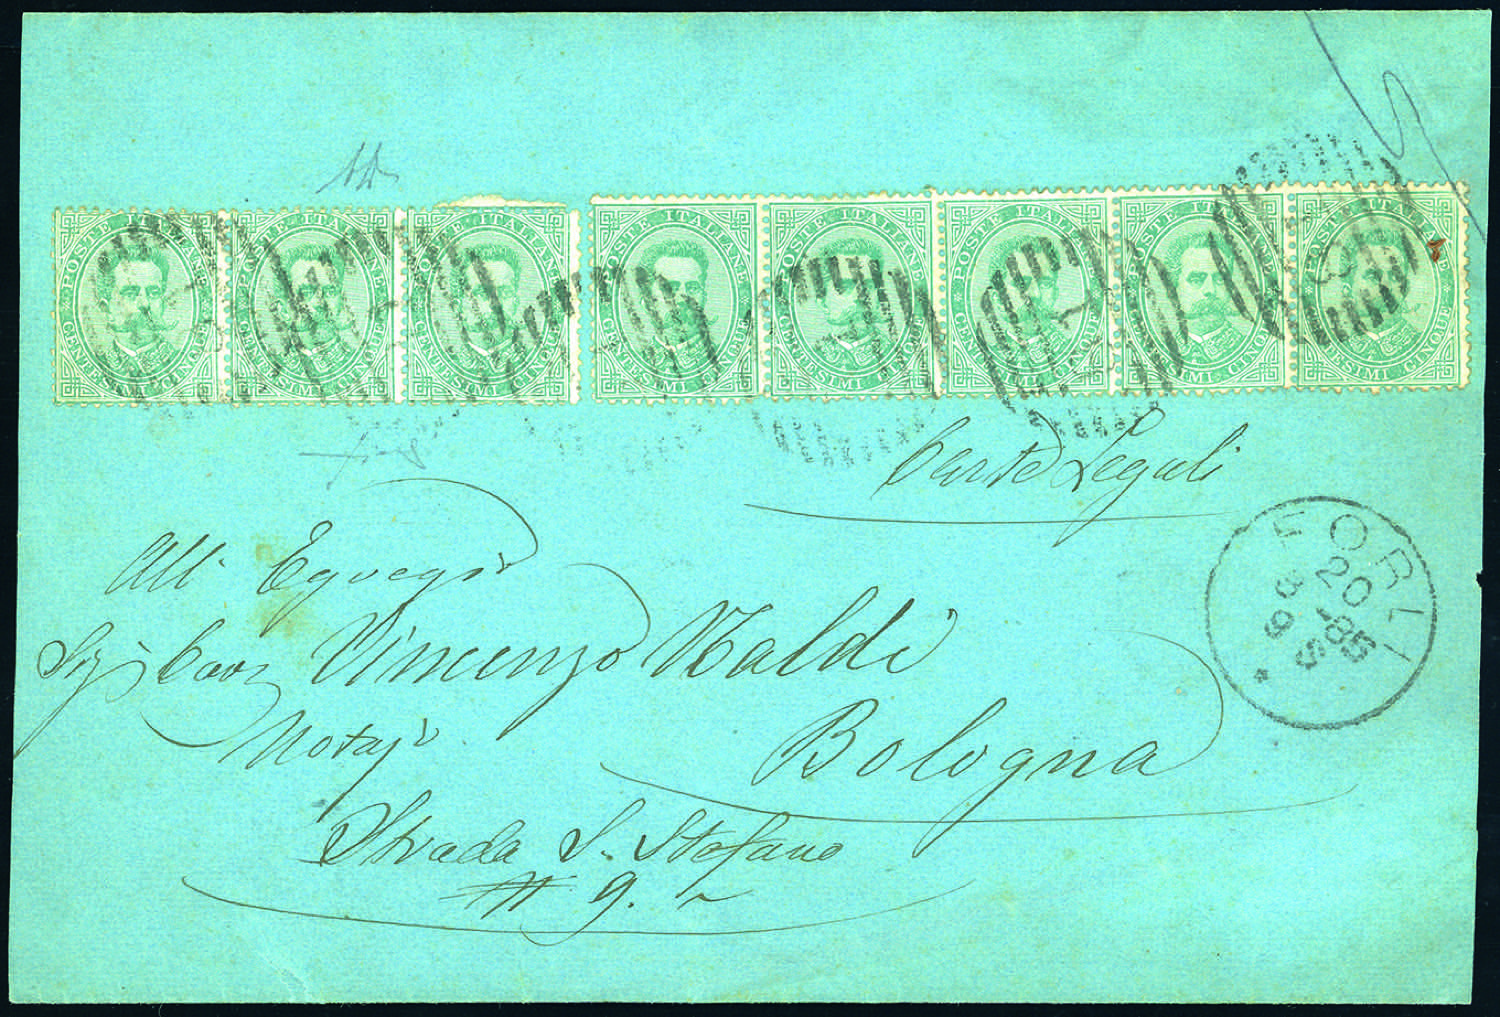 POSTE ITALIANE CENTESIMI CINQUE
POSTE ITALIANE CENTESIMI CINQUE
POSTE ITALIANE CENTESIMI CINQUE
POSTE ITALIANE CENTESIMI CINQUE
POSTE ITALIANE CENTESIMI CINQUE
POSTE ITALIANE CENTESIMI CINQUE
POSTE ITALIANE CENTESIMI CINQUE
POSTE ITALIANE CENTESIMI CINQUE
Carte Legali
FORLI
20
8-85
9 S
All' Egregio
Sig Cav Vincenzo Naldi
Notajo
Bologna
Strada S. Stefano
N 9.